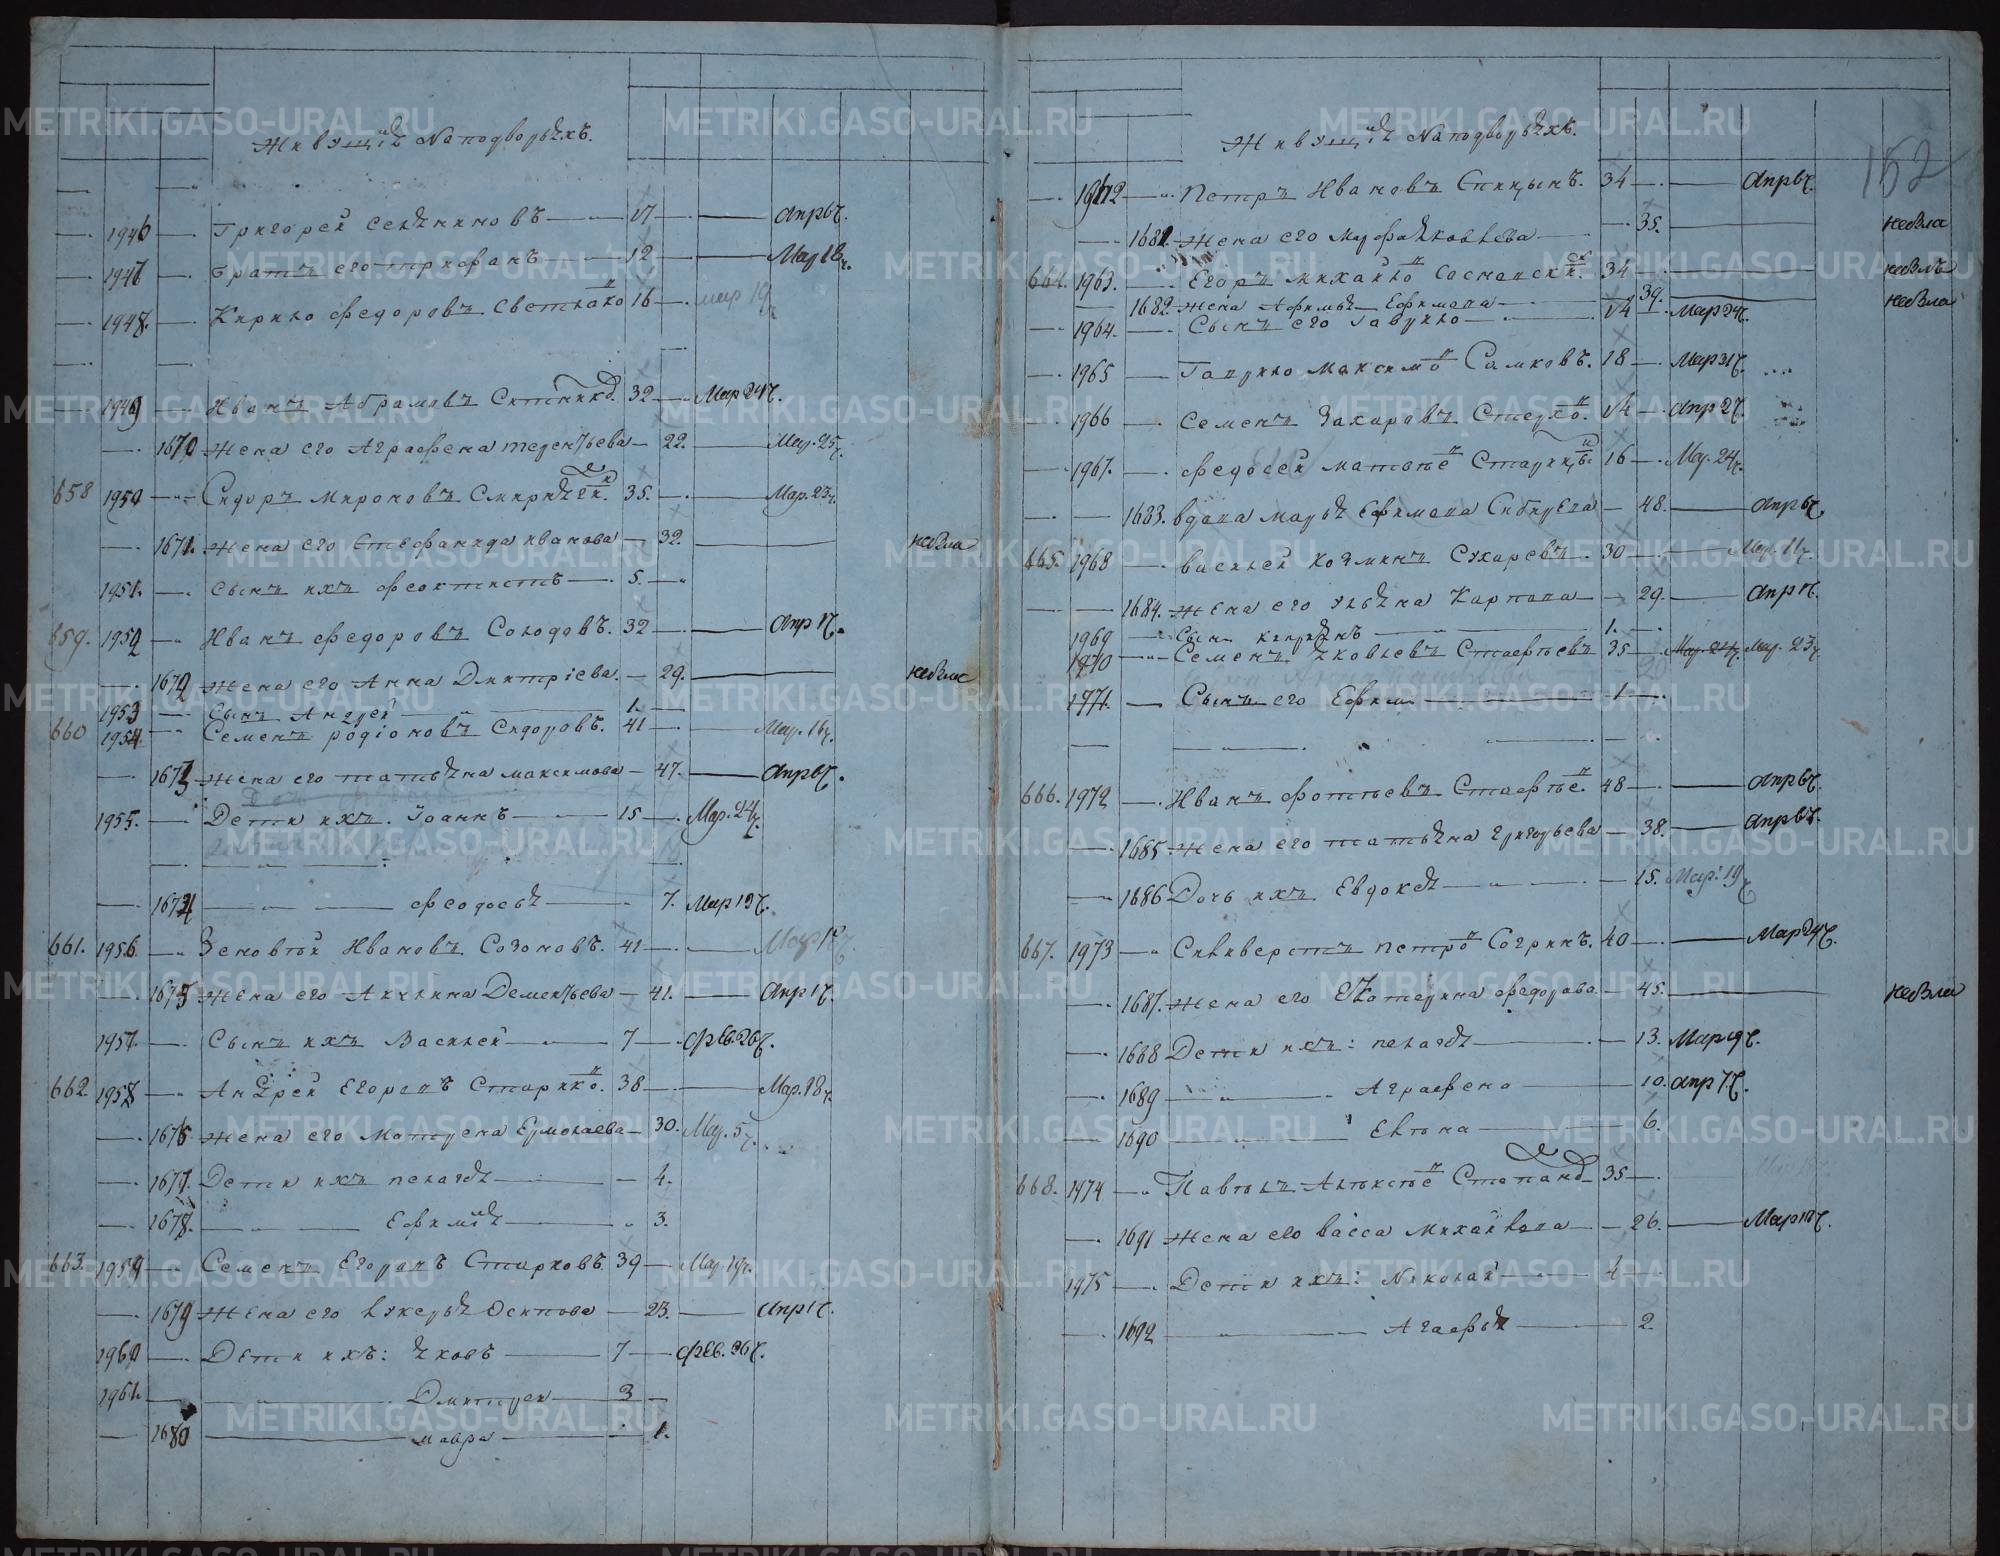 Живущїя На подворьяхъ.
1946 Григорей Селяниновъ 17 Апр 6ч.
1947 Братъ его Трифанъ 12 Мар 18ч.
1948. Кирило Федоровъ Светлако 16 мар 19ч
1949 Иванъ Абрамовъ 32 Мар 24ч.
1670 Жена его Аграфена Терентьева 22. Мар. 25ч.
658 1950 Сидоръ Мироновъ 35. Мар. 23ч.
1671. Жена его Стефанида Иванова 32.
1951. Сынъ ихъ Феоктистъ 5.
659. 1952 Иванъ Федоровъ Солодовъ. 32 Апр 1ч.
1672 Жена его Анна Дмитрїева. 29.
1953 Сынъ Андрей 1.
660 1954. Семенъ Родїоновъ Сидоровъ. 41 Мар. 16ч.
1673 Жена его Татьяна Максимова 47. Апр 6ч.
1955. Дети ихъ. Iоаннъ 15 Мар. 24ч.
1674 Феодосья 7. Мар 19ч.
661. 1956 Зеновѣй Ивановъ Созоновъ. 41 Мар
1675 Жена его Акилина Дементьева 41. Апр 1ч.
1957. Сынъ ихъ Василей 7 Фев. 26ч.
662. 1958 Андрей Егоровъ Старико. 38 Мар. 18ч.
1676 Жена его Матрена Ермолаева 30. Мар. 5ч.
1677. Дети ихъ Пелагѣя 4.
1678. Ефимїя 3.
663. 1959 Семенъ Егоровъ Старковъ. 39 Мар. 19ч.
1679 Жена его Лукерья Осипова 23. Апр 1ч.
1960 Дети ихъ: Яковъ 7 Фев. 26ч.
1961. Дмитрей 3
1680 Мавра 1.
Живущїя На подворьяхъ. 152
1962 Петръ Ивановъ Спицынъ. 34 Апр 6ч.
1681. Жена его Марфа Яковлева 35.
664. 1963. Егоръ Михайло 34
1682. Жена Афимья Ефимова 39.
1964. Сынъ его Гаврило 14 Мар 24ч.
1965 Гаврило Максимо Самковъ. 18 Мар 31ч.
1966 Семенъ Захаровъ 14 Апр 2ч.
1967. Федосей Матвѣе 16 Мар. 24ч.
1683. вдова Марья Ефимова 48. Апр 6ч.
665. 1968 Василей Козминъ Сухаревъ. 30 Мар. 11ч.
1684. Жена его Ульяна Карпова 29. Апр 1ч.
1969 Сынъ Кипрїянъ 1.
1970 Семенъ Яковлевъ Стафѣевъ 35 Мар. 24ч. Мар. 23ч
1971. Сынъ его Ефимъ 1.
666. 1972 Иванъ Фотѣевъ Стафѣе. 48 Апр 6ч.
1685 Жена его Татьяна Григорьева 38. Апр 6ч.
1686 Дочь ихъ Евдокея 15. Мар. 19ч
667. 1973 Силиверстъ Петро Согринъ. 40 Мар 24ч.
1687. Жена его Екатерина Федорова 45.
1688 Дети ихъ: Пелагѣя 13. Мар 19ч.
1689 Аграфена 10. Апр 7ч.
1690 6.
668. 1974 Павѣлъ Алѣксѣе 35
1691 Жена его Васса Михайлова 26. Мар 10ч.
1975 Дети ихъ: Николай 4
1692 Агафья 2
METRIKI.GASO-URAL.RU